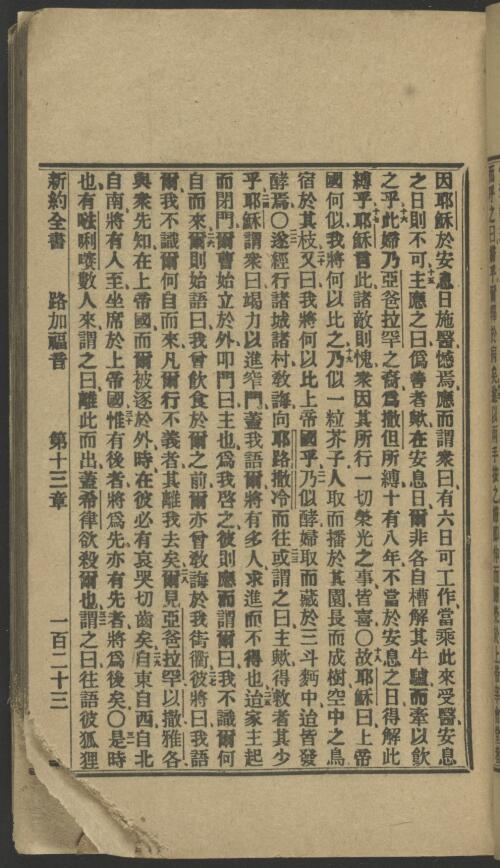 因耶穌於安息日施醫憾焉應而謂衆曰有六日可工作當乘此來受醫安息
之日則不可十五主應之曰僞善者歟在安息日爾非各自槽解其牛驢而牽以飲
之乎十六此婦乃亞爸拉罕之裔爲撒但所縛十有八年不當於安息之日得解此
縛乎十七耶穌言此諸敵則愧衆因其所行一切榮光之事皆喜〇十八故耶穌曰上帝
國何似我將何以比之十九乃似一粒芥子人取而播於其園長而成樹空中之鳥
宿於其枝二十又曰我將何以比上帝國乎二一乃似酵婦取而藏於三斗麪中迨皆發
酵焉〇二二遂經行諸城諸村敎誨向耶路撒冷而往二三或謂之曰主歟得救者其少
乎耶穌謂衆曰二四竭力以進窄門蓋我語爾將有多人求進而不得也二五迨家主起
而閉門爾曹始立於外叩門曰主也爲我啓之彼則應而謂爾曰我不識爾何
自而來二六爾則始語曰我曾飲食於爾之前爾亦曾敎誨於我街衢二七彼將曰我語
爾我不識爾何自而來凡爾行不義者其離我去矣二八爾見亞爸拉罕以撒雅各
與衆先知在上帝國而爾被逐於外時在彼必有哀哭切齒矣二九自東自西自北
自南將有人至坐席於上帝國三十惟有後者將爲先亦有先者將爲後矣〇三一是時
也有𠵽唎㗔數人來謂之曰離此而出蓋希律欲殺爾也三二謂之曰往語彼狐狸
新約全書 路加福音 第十三章 一百二十三